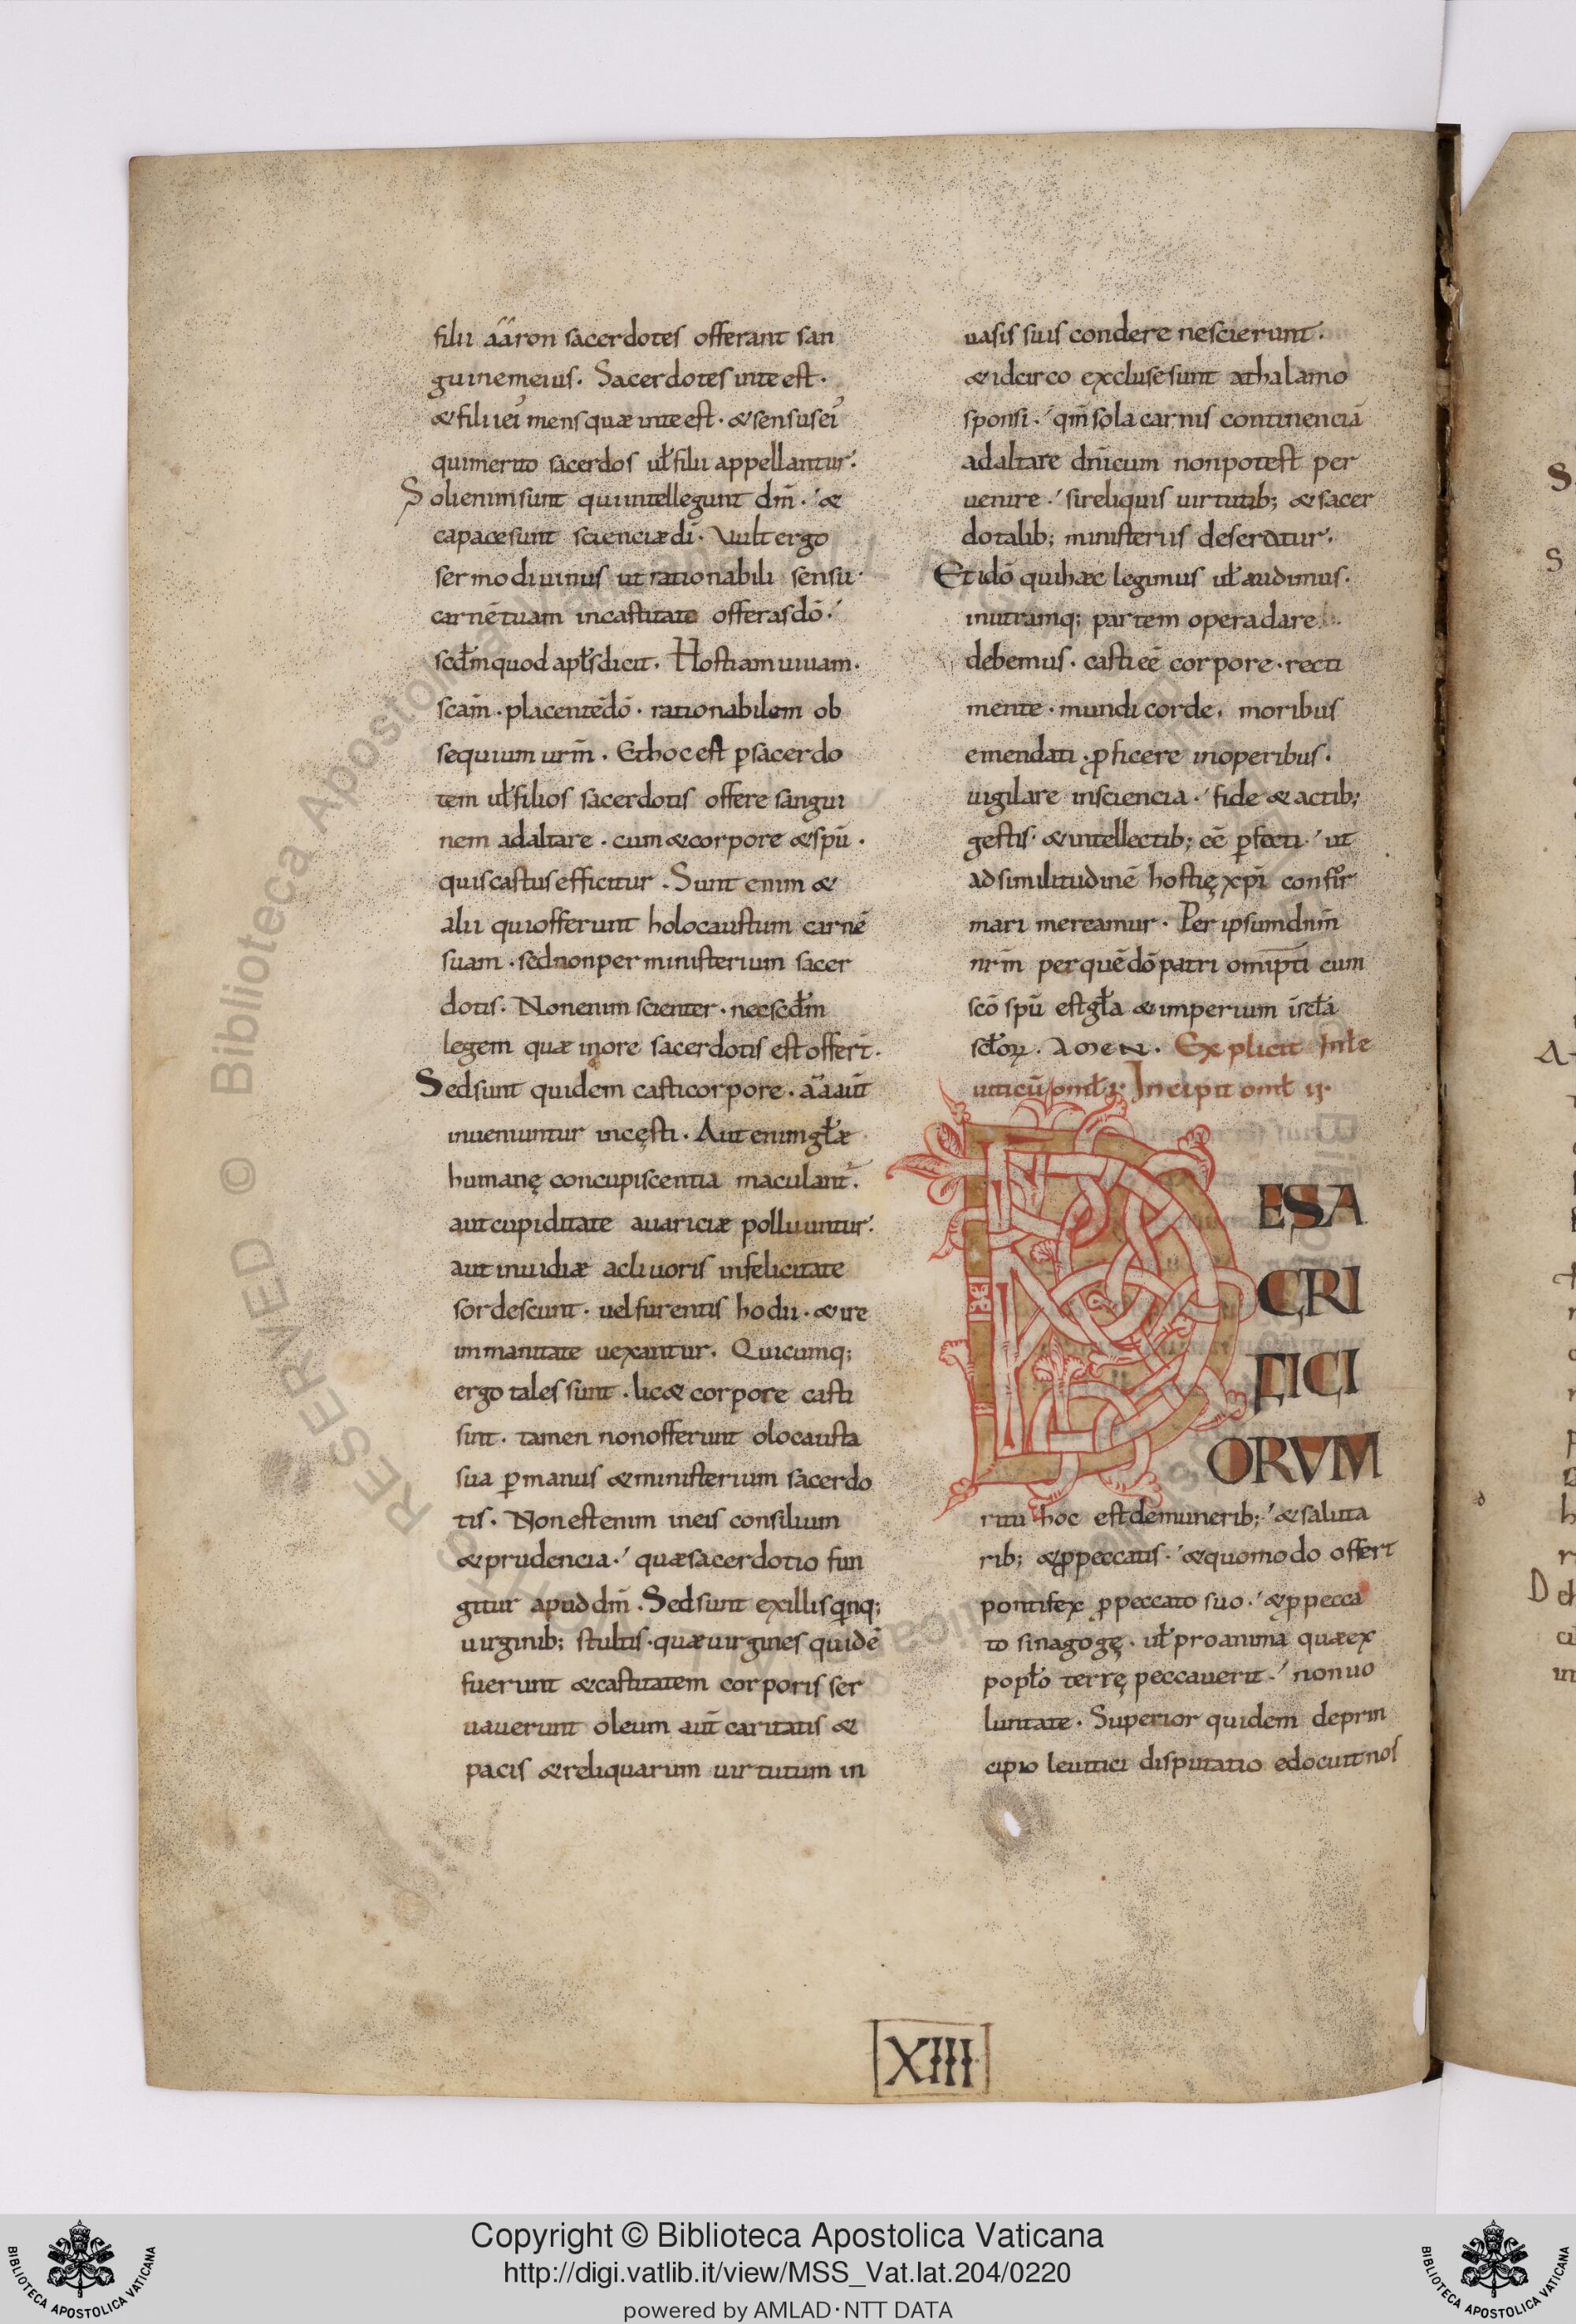 filii ááron sacerdotes offerant san
guinem eius. Sacerdotes in te est.
& filii ei᾿ mens quæ in te est. & sensus ei᾿
qui merito sacerdos ul̄ filii appellantur.
Soli enim sunt qui intellegunt dm̄. &
capaces sunt scienciæ dī. Vult ergo
sermo diuinus ut rationabili sensu
carnē tuam in castitate offeras dō.
scd̄m quod apl̄s dicit. Hostiam uiuam.
scām. placentē dō. rationabilem ob
sequium urm̄. Et hoc est p̱ sacerdo
tem ul̄ filios sacerdotis offere sangui
nem ad altare. cum & corpore & spū.
quis castus efficitur. Sunt enim &
alii qui offerunt holocaustum carnē
suam. sed non per ministerium sacer
dotis. Non enim scienter. nec scd̄m
legem quæ in ore sacerdotis est offert.
Sed sunt quidem casti corpore. áá aūt
inueniuntur incęsti. Aut enim gl̄æ
humanę concupiscentia maculant᾿.
aut cupiditate auariciæ polluuntur.
aut inuidiæ ac liuoris infelicitate
sordescunt. uel furentis hodii. & ire
immanitate uexantur. Quicumq;
ergo tales sunt. lic& corpore casti
sint. tamen non offerunt olocausta
sua p̱ manus & ministerium sacerdo
tis. Non est enim in eis consilium
& prudencia. quæ sacerdotio fun
gitur apud dm̄. Sed sunt ex illis qinq;
uirginib; stultis. quæ uirgines quidē
fuerunt & castitatem corporis ser
uauerunt oleum aūt caritatis &
pacis & reliquarum uirtutum in
uasis suis condere nescierunt.
& idcirco excluse sunt a thalamo
sponsi. qm̄ sola carnis continenciā
ad altare dn̄icum non potest per
uenire. si reliquis uirtutib; & sacer
dotalib; ministeriis deseratur.
Et idō qui hæc legimus ul̄ audimus.
in utramq; partem opera dare
debemus. casti eē corpore. recti
mente. mundi corde. moribus
emendati. p̱ficere in operibus.
uigilare in sciencia. fide & actib;
gestis. & intellectib; eē p̱fecti. ut
ad similitudinē hostię xp̄i confir
mari mereamur. Per ipsum dnm̄
nrm̄ per quē dō patri omip̄ti cum
scō spū est gl̄a & imperium in scl̄a
scl̄oꝝ. AMEN. Explicit In le
uiticū oml̄ I. Incipit oml̄ II.
DE SA
CRI
FICI
ORVM
ritu hoc est de munerib; & saluta
rib; & p̱ peccatis. & quomodo offert
pontifex p̱ peccato suo. & p̱ pecca
to sinagogę. ul̄ pro anima quæ ex
popl̄o terrę peccauerit. non uo
luntate. Superior quidem de prin
cipio leuitici disputatio edocuit nos
XIII
Copyright © Biblioteca Apostolica Vaticana
http://digi.vatlib.it/view/MSS_Vat.lat.204/0220
powered by AMLAD·NTT DATA
BIBLIOTECA APOSTOLICA VATICANA
BIBLIOTECA APOSTOLICA VATICANA